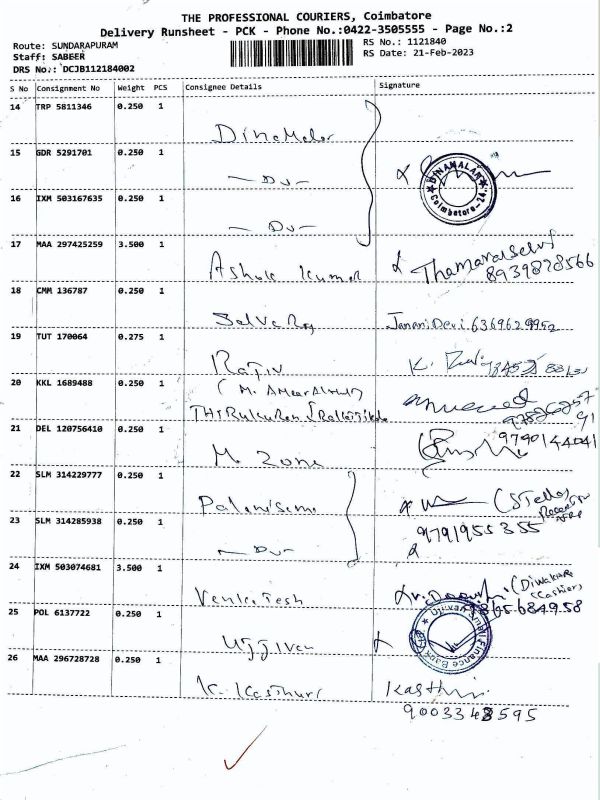 THE PROFESSIONAL COURIERS, Coimbatore
Delivery Runsheet - PCK - Phone No.:0422-3505555 - Page No.:2
Route: SUNDARAPURAM
Staff: SABEER
DRS No.: DCJB112184002
RS No.: 1121840
RS Date: 21-Feb-2023
S No Consignment No Weight PCS Consignee Details Signature
14 TRP 5811346 0.250 1 Dinamalar
15 GDR 5291701 0.250 1 - Do -
DINAMALAR
Coimbatore-24.
16 IXM 503167635 0.250 1 - Do -
17 MAA 297425259 3.500 1 Ashok Kumar Thamaraiselvi
8939878566
18 CMM 136787 0.250 1 Selvaraj Janani Devi. 6369629952
19 TUT 170064 0.275 1 Rajiv K.
20 KKL 1689488 0.250 1 (M. Ameer
21 DEL 120756410 0.250 1 M. Zone 9790144041
22 SLM 314229777 0.250 1 Palanisamy (Stella
23 SLM 314285938 0.250 1 - Do - 9791955355
24 IXM 503074681 3.500 1 Venkatesh (Diwakar
(Cashier)
25 POL 6137722 0.250 1 Ujjivan
Ujjivan Small Finance Bank
26 MAA 296728728 0.250 1 K. Kasthuri Kasthuri
9003348595